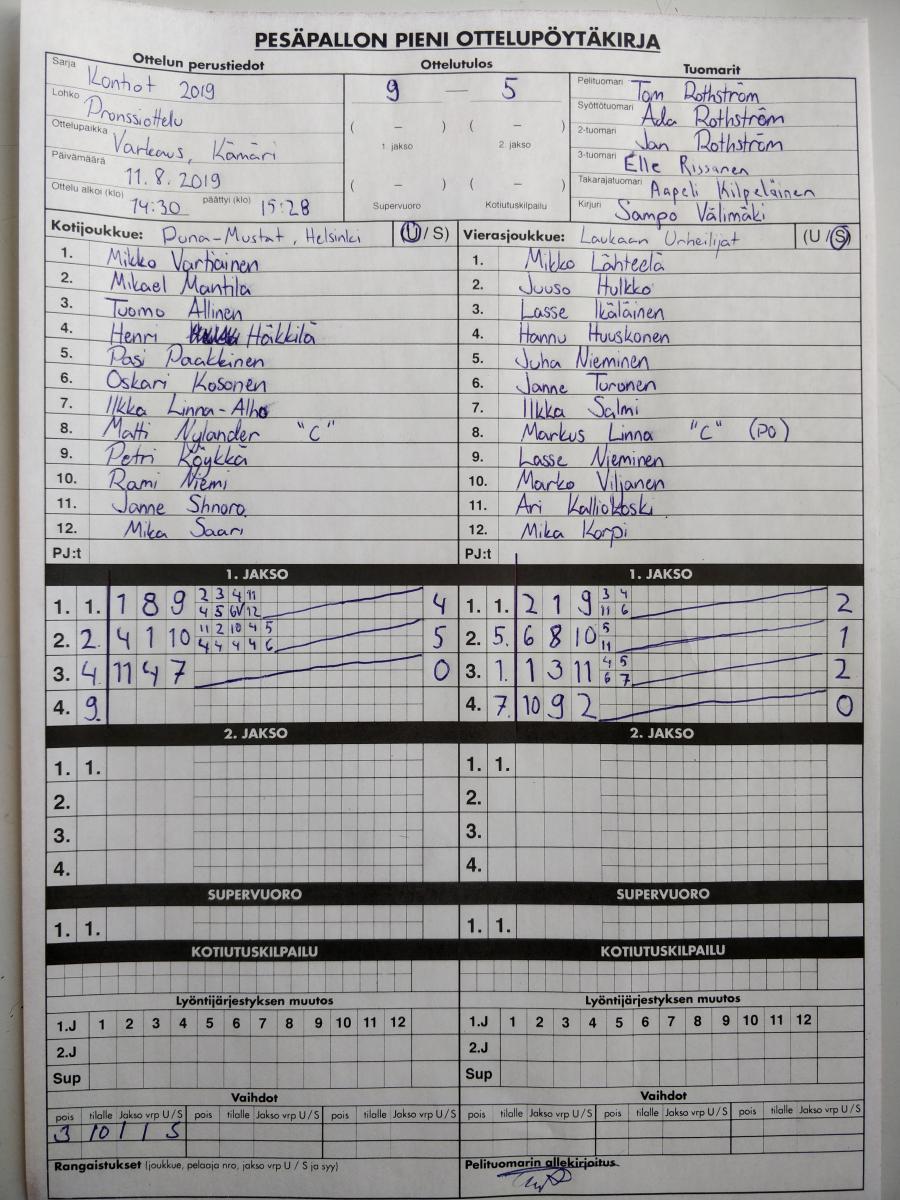 PESÄPALLON PIENI OTTELUPÖYTÄKIRJA
Ottelun perustiedot
Sarja Konhot 2019
Lohko Pronssiottelu
Ottelupaikka Varkaus, Kämäri
Päivämäärä 11.8.2019
Ottelu alkoi (klo) 14:30 päättyi (klo) 15:28
Ottelutulos
9 — 5
( – ) ( – )
1. jakso 2. jakso
( – ) ( – )
Supervuoro Kotiutuskilpailu
Tuomarit
Pelituomari Tom Rothström
Syöttötuomari Ada Rothström
2-tuomari Jan Rothström
3-tuomari Elle Rissanen
Takarajatuomari Aapeli Kilpeläinen
Kirjuri Sampo Välimäki
Kotijoukkue: Puna-Mustat, Helsinki (U / S)
1. Mikko Vartiainen
2. Mikael Mantila
3. Tuomo Allinen
4. Henri Häkkilä
5. Pasi Paakkinen
6. Oskari Kosonen
7. Ilkka Linna-Alho
8. Matti Nylander "C"
9. Petri Köykkä
10. Rami Niemi
11. Janne Shnoro
12. Mika Saari
PJ:t
Vierasjoukkue: Laukaan Urheilijat (U / S)
1. Mikko Lähteelä
2. Juuso Hulkko
3. Lasse Ikäläinen
4. Hannu Huuskonen
5. Juha Nieminen
6. Janne Turunen
7. Ilkka Salmi
8. Markus Linna "C" (PO)
9. Lasse Nieminen
10. Marko Viljanen
11. Ari Kalliokoski
12. Mika Korpi
PJ:t
1. JAKSO
1. 1. 1 8 9 2 3 4 11 4
4 5 6 12
2. 2. 4 1 10 11 2 10 4 5 5
4 4 4 4 6
3. 4. 11 4 7 0
4. 9.
1. JAKSO
1. 1. 2 1 9 3 4 2
11 6
2. 5. 6 8 10 5 1
11
3. 1. 1 3 11 4 5 2
6 7
4. 7. 10 9 2 0
2. JAKSO
1. 1.
2.
3.
4.
2. JAKSO
1. 1.
2.
3.
4.
SUPERVUORO
1. 1.
SUPERVUORO
1. 1.
KOTIUTUSKILPAILU
KOTIUTUSKILPAILU
Lyöntijärjestyksen muutos
1.J 1 2 3 4 5 6 7 8 9 10 11 12
2.J
Sup
Lyöntijärjestyksen muutos
1.J 1 2 3 4 5 6 7 8 9 10 11 12
2.J
Sup
Vaihdot
pois tilalle Jakso vrp U / S pois tilalle Jakso vrp U / S pois tilalle Jakso vrp U / S
3 10 1 1 S
Vaihdot
pois tilalle Jakso vrp U / S pois tilalle Jakso vrp U / S pois tilalle Jakso vrp U / S
Rangaistukset (joukkue, pelaaja nro, jakso vrp U / S ja syy)
Pelituomarin allekirjoitus